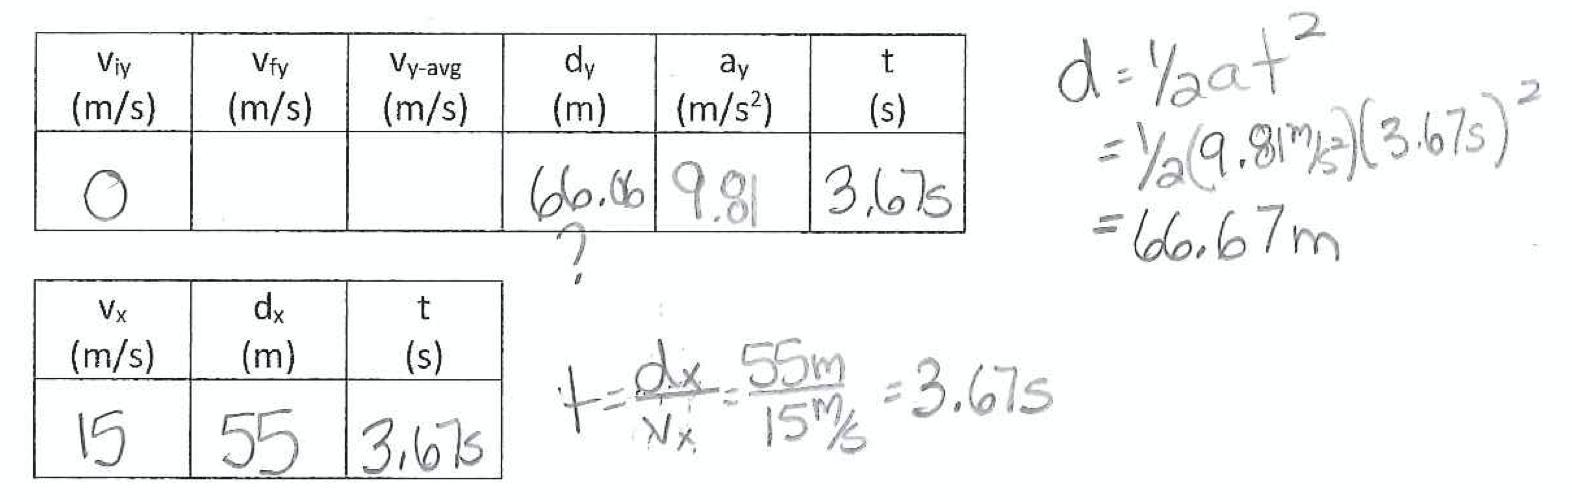 v_iy (m/s) v_fy (m/s) v_y-avg (m/s) d_y (m) a_y (m/s²) t (s)
0 66.06 9.81 3.67s
?
d = ½at²
= ½(9.81m/s²)(3.67s)²
= 66.67m
v_x (m/s) d_x (m) t (s)
15 55 3.67s
t = dx/vx = 55m/15m/s = 3.67s